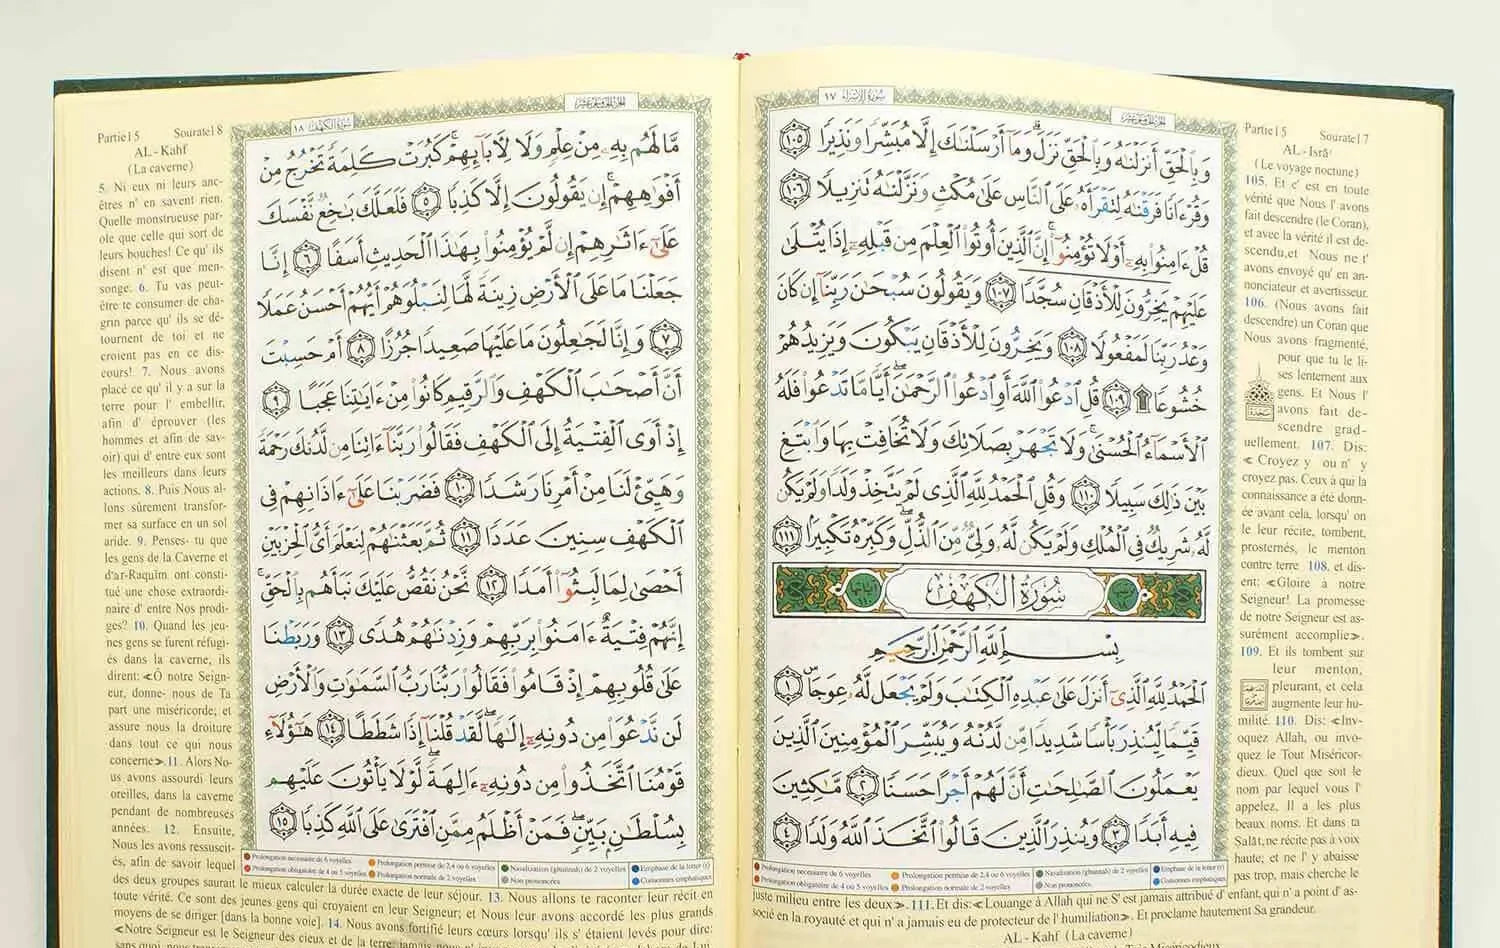 سورة الإسراء ١٧
وَبِالْحَقِّ أَنزَلْنَٰهُ وَبِالْحَقِّ نَزَلَ وَمَا أَرْسَلْنَٰكَ إِلَّا مُبَشِّرًا وَنَذِيرًا ١٠٥
وَقُرْءَانًا فَرَقْنَٰهُ لِتَقْرَأَهُ عَلَى النَّاسِ عَلَىٰ مُكْثٍ وَنَزَّلْنَٰهُ تَنزِيلًا ١٠٦
قُلْ ءَامِنُوا بِهِ أَوْ لَا تُؤْمِنُوا إِنَّ الَّذِينَ أُوتُوا الْعِلْمَ مِن قَبْلِهِ إِذَا يُتْلَىٰ
عَلَيْهِمْ يَخِرُّونَ لِلْأَذْقَانِ سُجَّدًا ١٠٧ وَيَقُولُونَ سُبْحَٰنَ رَبِّنَا إِن كَانَ
وَعْدُ رَبِّنَا لَمَفْعُولًا ١٠٨ وَيَخِرُّونَ لِلْأَذْقَانِ يَبْكُونَ وَيَزِيدُهُمْ
خُشُوعًا ۩ ١٠٩ قُلِ ادْعُوا اللَّهَ أَوِ ادْعُوا الرَّحْمَٰنَ أَيًّا مَّا تَدْعُوا فَلَهُ
الْأَسْمَاءُ الْحُسْنَىٰ وَلَا تَجْهَرْ بِصَلَاتِكَ وَلَا تُخَافِتْ بِهَا وَابْتَغِ
بَيْنَ ذَٰلِكَ سَبِيلًا ١١٠ وَقُلِ الْحَمْدُ لِلَّهِ الَّذِي لَمْ يَتَّخِذْ وَلَدًا وَلَمْ يَكُن
لَّهُ شَرِيكٌ فِي الْمُلْكِ وَلَمْ يَكُن لَّهُ وَلِيٌّ مِّنَ الذُّلِّ وَكَبِّرْهُ تَكْبِيرًا ١١١
سُورَةُ الْكَهْفِ
بِسْمِ اللَّهِ الرَّحْمَٰنِ الرَّحِيمِ
الْحَمْدُ لِلَّهِ الَّذِي أَنزَلَ عَلَىٰ عَبْدِهِ الْكِتَٰبَ وَلَمْ يَجْعَل لَّهُ عِوَجًا ١
قَيِّمًا لِّيُنذِرَ بَأْسًا شَدِيدًا مِّن لَّدُنْهُ وَيُبَشِّرَ الْمُؤْمِنِينَ الَّذِينَ
يَعْمَلُونَ الصَّٰلِحَٰتِ أَنَّ لَهُمْ أَجْرًا حَسَنًا ٢ مَّٰكِثِينَ
فِيهِ أَبَدًا ٣ وَيُنذِرَ الَّذِينَ قَالُوا اتَّخَذَ اللَّهُ وَلَدًا ٤
Prolongation nécessaire de 6 voyelles
Prolongation permise de 2,4 ou 6 voyelles
Nasalization (ghunnah) de 2 voyelles
Emphase de la lettre (r)
Prolongation obligatoire de 4 ou 5 voyelles
Prolongation normale de 2 voyelles
Non prononcées
Consonnes emphatiques
Partie15 Sourate17
AL - Isrâ'
(Le voyage noctune)
105. Et c' est en toute
vérité que Nous l' avons
fait descendre (le Coran),
et avec la vérité il est de-
scendu,et Nous ne t'
avons envoyé qu' en an-
nonciateur et avertisseur.
106. (Nous avons fait
descendre) un Coran que
Nous avons fragmenté,
pour que tu le li-
ses lentement aux
gens. Et Nous l'
avons fait de-
scendre grad-
uellement. 107. Dis:
« Croyez y ou n' y
croyez pas. Ceux à qui la
connaissance a été donn-
ée avant cela, lorsqu' on
le leur récite, tombent,
prosternés, le menton
contre terre 108. et dis-
ent: «Gloire à notre
Seigneur! La promesse
de notre Seigneur est as-
surément accomplie».
109. Et ils tombent sur
leur menton,
pleurant, et cela
augmente leur hu-
milité. 110. Dis: «Inv-
oquez Allah, ou invo-
quez le Tout Miséricor-
dieux. Quel que soit le
nom par lequel vous l'
appelez, Il a les plus
beaux noms. Et dans ta
Salât, ne récite pas à voix
haute; et ne l' y abaisse
pas trop, mais cherche le
juste milieu entre les deux».111.Et dis:«Louange à Allah qui ne S' est jamais attribué d' enfant, qui n' a point d' as-
socié en la royauté et qui n' a jamais eu de protecteur de l' humiliation». Et proclame hautement Sa grandeur.
AL - Kahf (La caverne)
سورة الكهف ١٨
مَّا لَهُم بِهِ مِنْ عِلْمٍ وَلَا لِآبَائِهِمْ كَبُرَتْ كَلِمَةً تَخْرُجُ مِنْ
أَفْوَٰهِهِمْ إِن يَقُولُونَ إِلَّا كَذِبًا ٥ فَلَعَلَّكَ بَٰخِعٌ نَّفْسَكَ
عَلَىٰ ءَاثَٰرِهِمْ إِن لَّمْ يُؤْمِنُوا بِهَٰذَا الْحَدِيثِ أَسَفًا ٦ إِنَّا
جَعَلْنَا مَا عَلَى الْأَرْضِ زِينَةً لَّهَا لِنَبْلُوَهُمْ أَيُّهُمْ أَحْسَنُ عَمَلًا
٧ وَإِنَّا لَجَٰعِلُونَ مَا عَلَيْهَا صَعِيدًا جُرُزًا ٨ أَمْ حَسِبْتَ
أَنَّ أَصْحَٰبَ الْكَهْفِ وَالرَّقِيمِ كَانُوا مِنْ ءَايَٰتِنَا عَجَبًا ٩
إِذْ أَوَى الْفِتْيَةُ إِلَى الْكَهْفِ فَقَالُوا رَبَّنَا ءَاتِنَا مِن لَّدُنكَ رَحْمَةً
وَهَيِّئْ لَنَا مِنْ أَمْرِنَا رَشَدًا ١٠ فَضَرَبْنَا عَلَىٰ ءَاذَانِهِمْ فِي
الْكَهْفِ سِنِينَ عَدَدًا ١١ ثُمَّ بَعَثْنَٰهُمْ لِنَعْلَمَ أَيُّ الْحِزْبَيْنِ
أَحْصَىٰ لِمَا لَبِثُوا أَمَدًا ١٢ نَّحْنُ نَقُصُّ عَلَيْكَ نَبَأَهُم بِالْحَقِّ
إِنَّهُمْ فِتْيَةٌ ءَامَنُوا بِرَبِّهِمْ وَزِدْنَٰهُمْ هُدًى ١٣ وَرَبَطْنَا
عَلَىٰ قُلُوبِهِمْ إِذْ قَامُوا فَقَالُوا رَبُّنَا رَبُّ السَّمَٰوَٰتِ وَالْأَرْضِ
لَن نَّدْعُوَا مِن دُونِهِ إِلَٰهًا لَّقَدْ قُلْنَا إِذًا شَطَطًا ١٤ هَٰؤُلَاءِ
قَوْمُنَا اتَّخَذُوا مِن دُونِهِ ءَالِهَةً لَّوْلَا يَأْتُونَ عَلَيْهِم
بِسُلْطَٰنٍ بَيِّنٍ فَمَنْ أَظْلَمُ مِمَّنِ افْتَرَىٰ عَلَى اللَّهِ كَذِبًا ١٥
Prolongation nécessaire de 6 voyelles
Prolongation permise de 2,4 ou 6 voyelles
Nasalization (ghunnah) de 2 voyelles
Emphase de la lettre (r)
Prolongation obligatoire de 4 ou 5 voyelles
Prolongation normale de 2 voyelles
Non prononcées
Consonnes emphatiques
Partie15 Sourate18
AL - Kahf
(La caverne)
5. Ni eux ni leurs anc-
êtres n' en savent rien.
Quelle monstrueuse par-
ole que celle qui sort de
leurs bouches! Ce qu' ils
disent n' est que men-
songe. 6. Tu vas peut-
être te consumer de cha-
grin parce qu' ils se dé-
tournent de toi et ne
croient pas en ce dis-
cours! 7. Nous avons
placé ce qu' il y a sur la
terre pour l' embellir,
afin d' éprouver (les
hommes et afin de sav-
oir) qui d' entre eux sont
les meilleurs dans leurs
actions. 8. Puis Nous al-
lons sûrement transfor-
mer sa surface en un sol
aride. 9. Penses- tu que
les gens de la Caverne et
d'ar-Raquîm ont consti-
tué une chose extraordi-
naire d' entre Nos prodi-
ges? 10. Quand les jeu-
nes gens se furent réfugi-
és dans la caverne, ils
dirent: «Ô notre Seign-
eur, donne- nous de Ta
part une miséricorde; et
assure nous la droiture
dans tout ce qui nous
concerne».11. Alors No-
us avons assourdi leurs
oreilles, dans la caverne
pendant de nombreuses
années. 12. Ensuite,
Nous les avons ressuscit-
és, afin de savoir lequel
des deux groupes saurait le mieux calculer la durée exacte de leur séjour. 13. Nous allons te raconter leur récit en
toute vérité. Ce sont des jeunes gens qui croyaient en leur Seigneur; et Nous leur avons accordé les plus grands
moyens de se diriger [dans la bonne voie]. 14. Nous avons fortifié leurs cœurs lorsqu' ils s' étaient levés pour dire:
«Notre Seigneur est le Seigneur des cieux et de la terre,